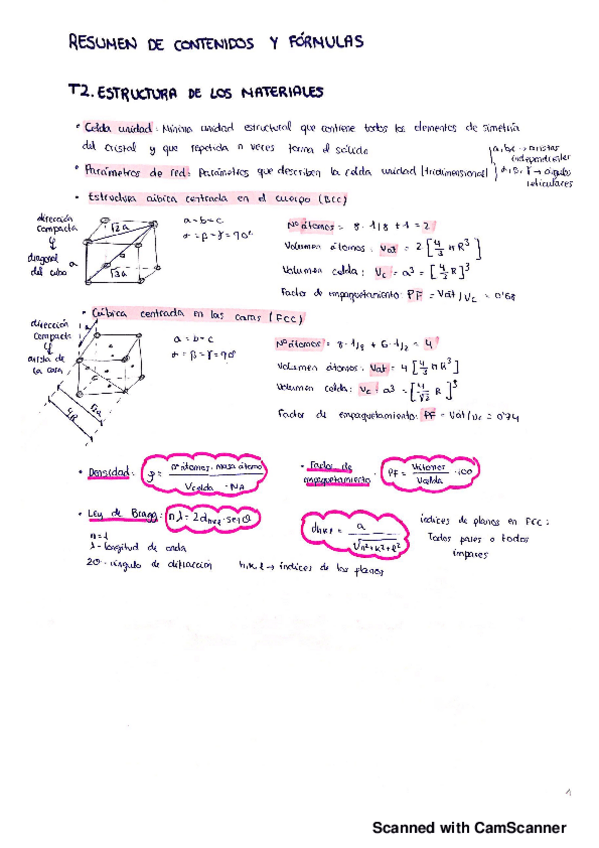 RESUMEN DE CONTENIDOS Y FÓRMULAS
T2. ESTRUCTURA DE LOS MATERIALES
• Celda unidad: Mínima unidad estructural que contiene todos los elementos de simetría
del cristal y que repetida n veces forma el sólido
a,b,c → aristas
independientes
• Parámetros de red: Parámetros que describen la celda unidad (tridimensional)
α, β, γ → ángulos
reticulares
• Estructura cúbica centrada en el cuerpo (BCC)
dirección
compacta
diagonal
del cubo
√2a
√3a
a
a=b=c
α=β=γ=90°
Nº átomos = 8·1/8 + 1 = 2
Volumen átomos: Vat = 2 [4/3 π R³]
Volumen celda: Vc = a³ = [4/3 R]³
Factor de empaquetamiento: PF = Vat/Vc = 0'68
• Cúbica centrada en las caras (FCC)
dirección
compacta
arista de
la cara
4R
√2a
a=b=c
α=β=γ=90°
Nº átomos = 8·1/8 + 6·1/2 = 4
Volumen átomos: Vat = 4 [4/3 π R³]
Volumen celda: Vc = a³ = [4/√2 R]³
Factor de empaquetamiento: PF = Vat/Vc = 0'74
• Densidad: ρ = nº átomos · masa átomo / Vcelda · NA
• Factor de
empaquetamiento: PF = Vátomos / Vcelda · 100
• Ley de Bragg: nλ = 2dhkl · senθ
dhkl = a / √h²+k²+l²
índices de planos en FCC:
Todos pares o todos
impares
n=1
λ - longitud de onda
2θ - ángulo de difracción
h,k,l → índices de los planos
1
Scanned with CamScanner